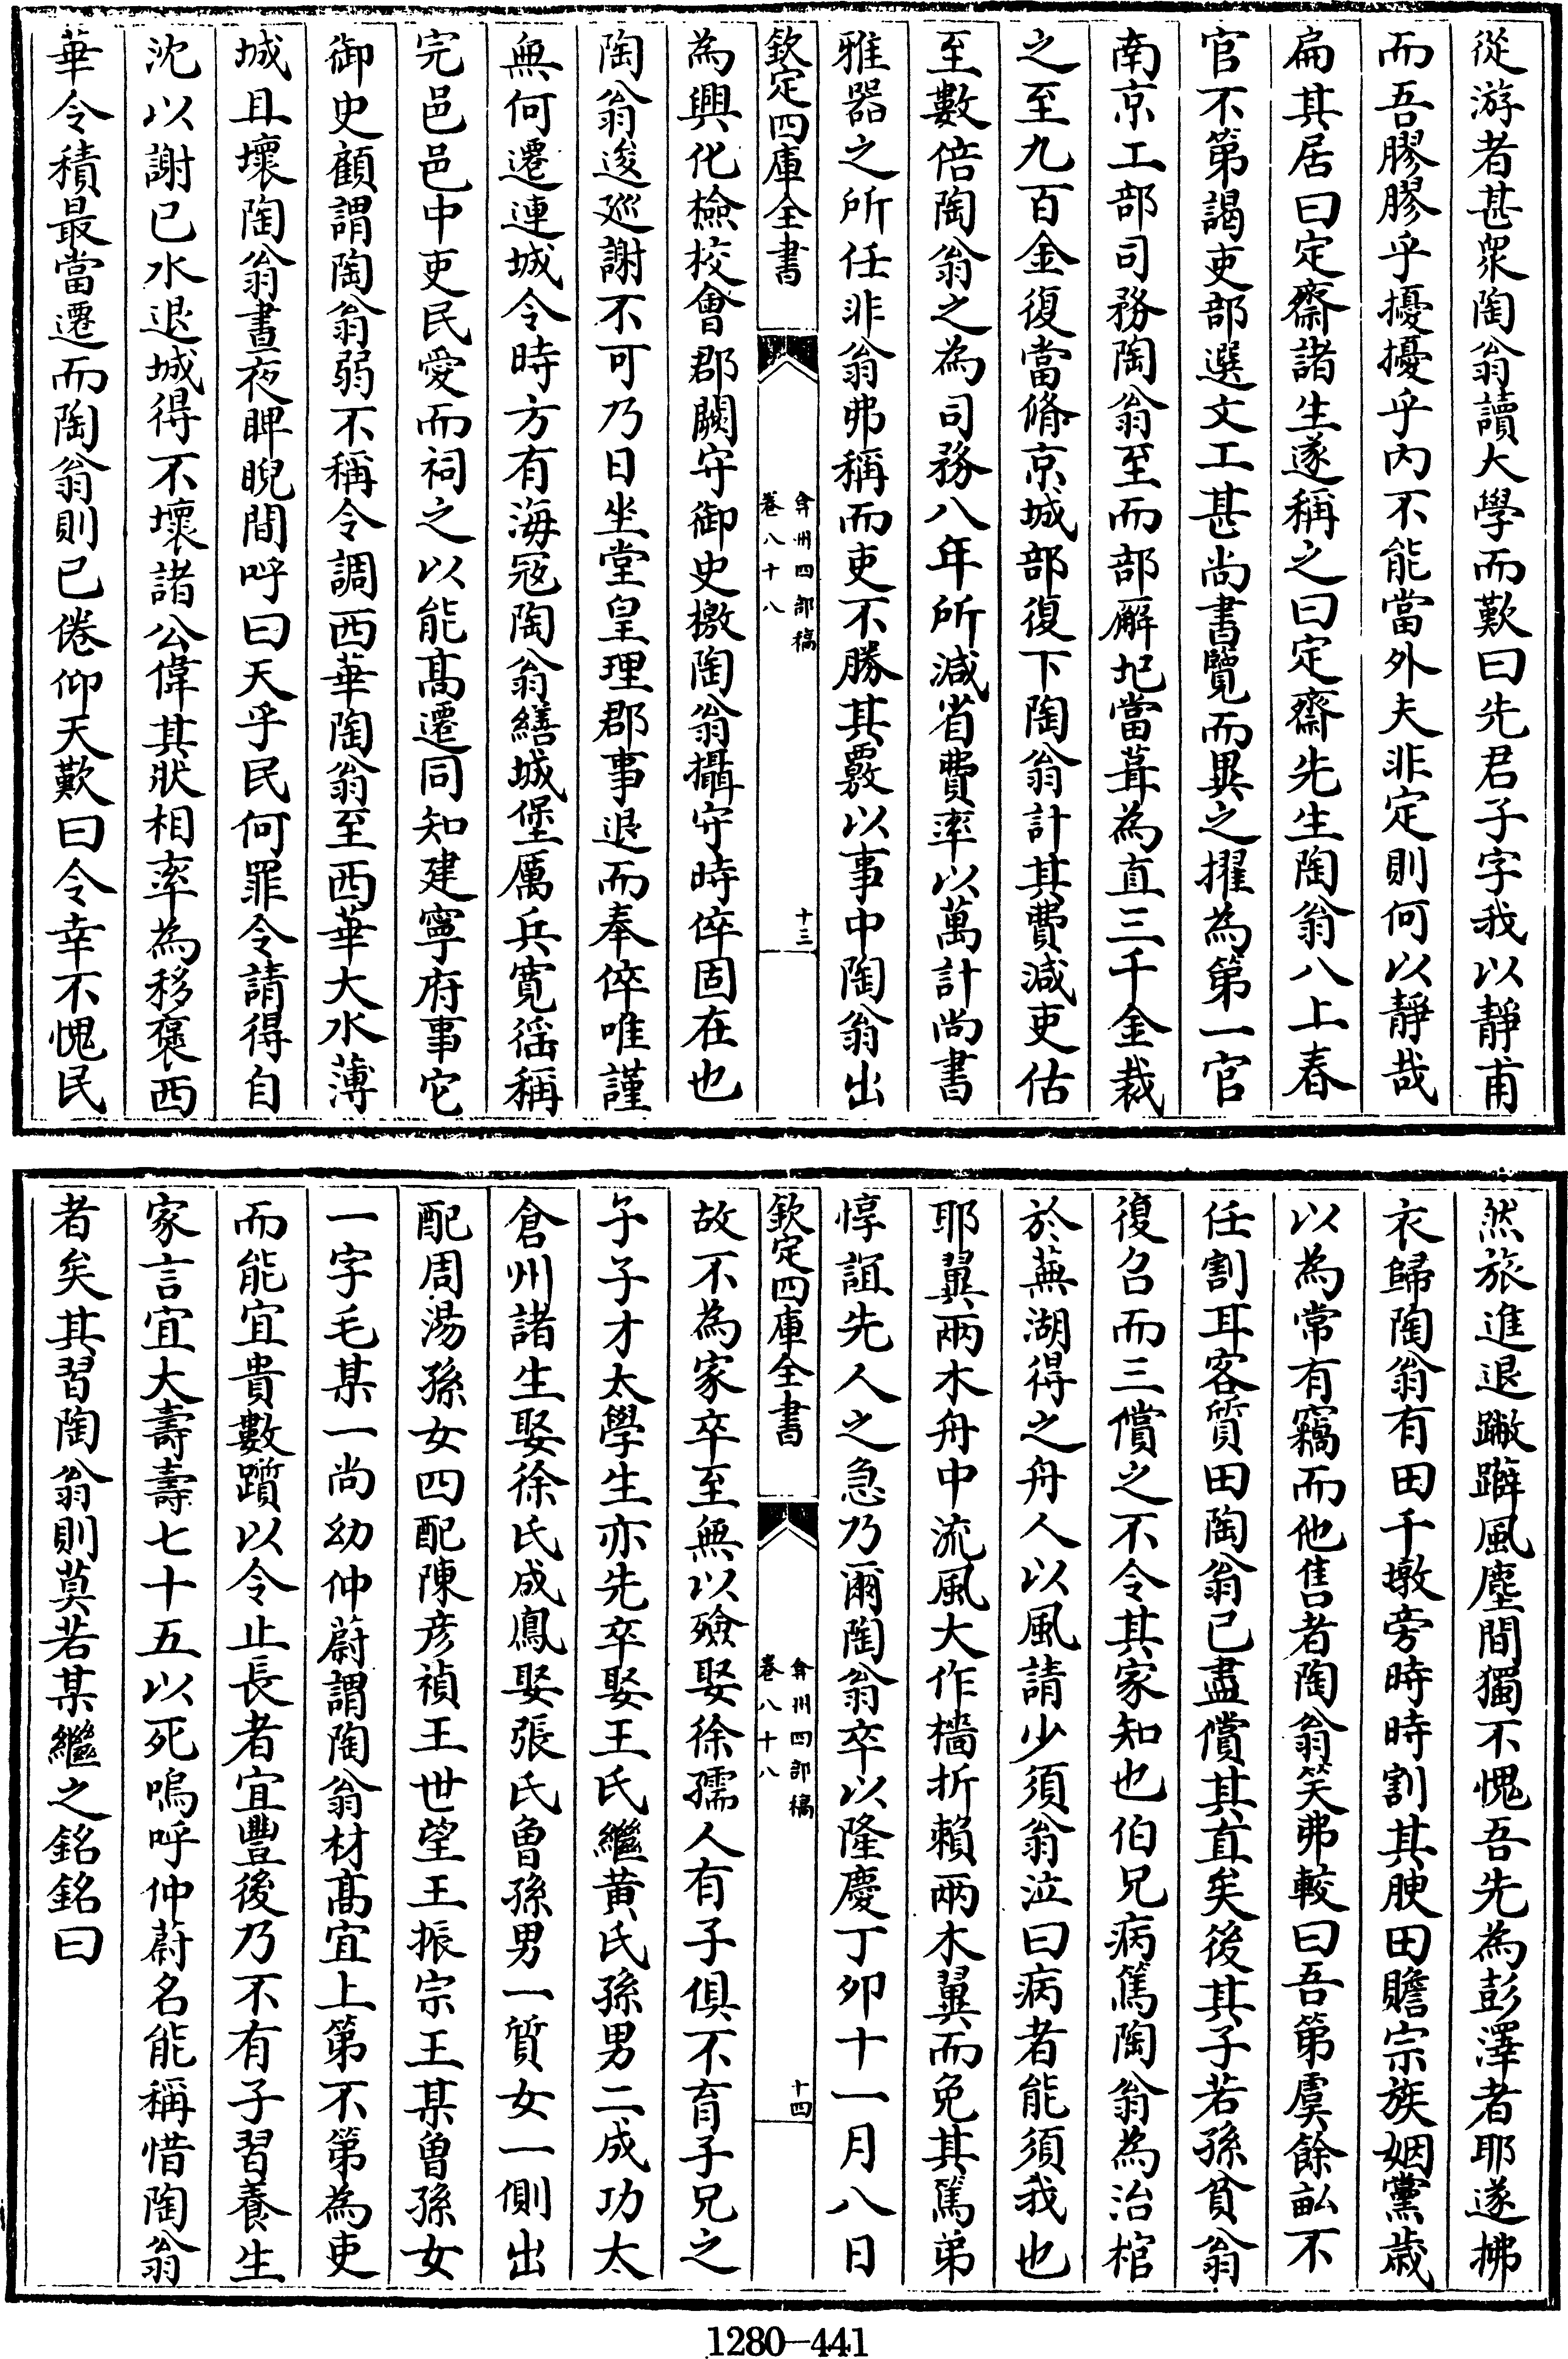 從游者甚衆陶翁讀大學而歎曰先君子字我以靜甫
而吾膠膠乎擾擾乎内不能當外夫非定則何以靜哉
扁其居曰定齋諸生遂稱之曰定齋先生陶翁八上春
官不第謁吏部選文工甚尚書覽而異之擢為第一官
南京工部司務陶翁至而部廨圮當葺為直三千金裁
之至九百金復當脩京城部復下陶翁計其費減吏估
至數倍陶翁之為司務八年所減省費率以萬計尚書
雅器之所任非翁弗稱而吏不勝其覈以事中陶翁出
欽定四庫全書
弇州四部稿
卷八十八
十三
為興化檢校會郡闕守御史檄陶翁攝守時倅固在也
陶翁逡巡謝不可乃日坐堂皇理郡事退而奉倅唯謹
無何遷連城令時方有海寇陶翁繕城堡厲兵寛徭稱
完邑邑中吏民愛而祠之以能髙遷同知建寧府事它
御史顧謂陶翁弱不稱令調西華陶翁至西華大水薄
城且壞陶翁晝夜睥睨間呼曰天乎民何罪令請得自
沈以謝已水退城得不壞諸公偉其狀相率為移褒西
華令積最當遷而陶翁則已倦仰天歎曰令幸不愧民
然旅進退蹩躃風塵間獨不愧吾先為彭澤者耶遂拂
衣歸陶翁有田千墩旁時時割其腴田贍宗族姻黨歳
以為常有竊而他售者陶翁笑弗較曰吾第虞餘畆不
任割耳客質田陶翁已盡償其直矣後其子若孫貧翁
復召而三償之不令其家知也伯兄病篤陶翁為治棺
於蕪湖得之舟人以風請少須翁泣曰病者能須我也
耶翼兩木舟中流風大作檣折賴兩木翼而免其篤弟
惇誼先人之急乃爾陶翁卒以隆慶丁卯十一月八日
欽定四庫全書
弇州四部稿
卷八十八
十四
故不為家卒至無以殮娶徐孺人有子俱不育子兄之
子子才太學生亦先卒娶王氏繼黄氏孫男二成功太
倉州諸生娶徐氏成鳳娶張氏曾孫男一質女一側出
配周湯孫女四配陳彦禎王世望王振宗王某曾孫女
一字毛某一尚幼仲蔚謂陶翁材髙宜上第不第為吏
而能宜貴數躓以令止長者宜豐後乃不有子習養生
家言宜大壽壽七十五以死嗚呼仲蔚名能稱惜陶翁
者矣其習陶翁則莫若某繼之銘銘曰
1280—441